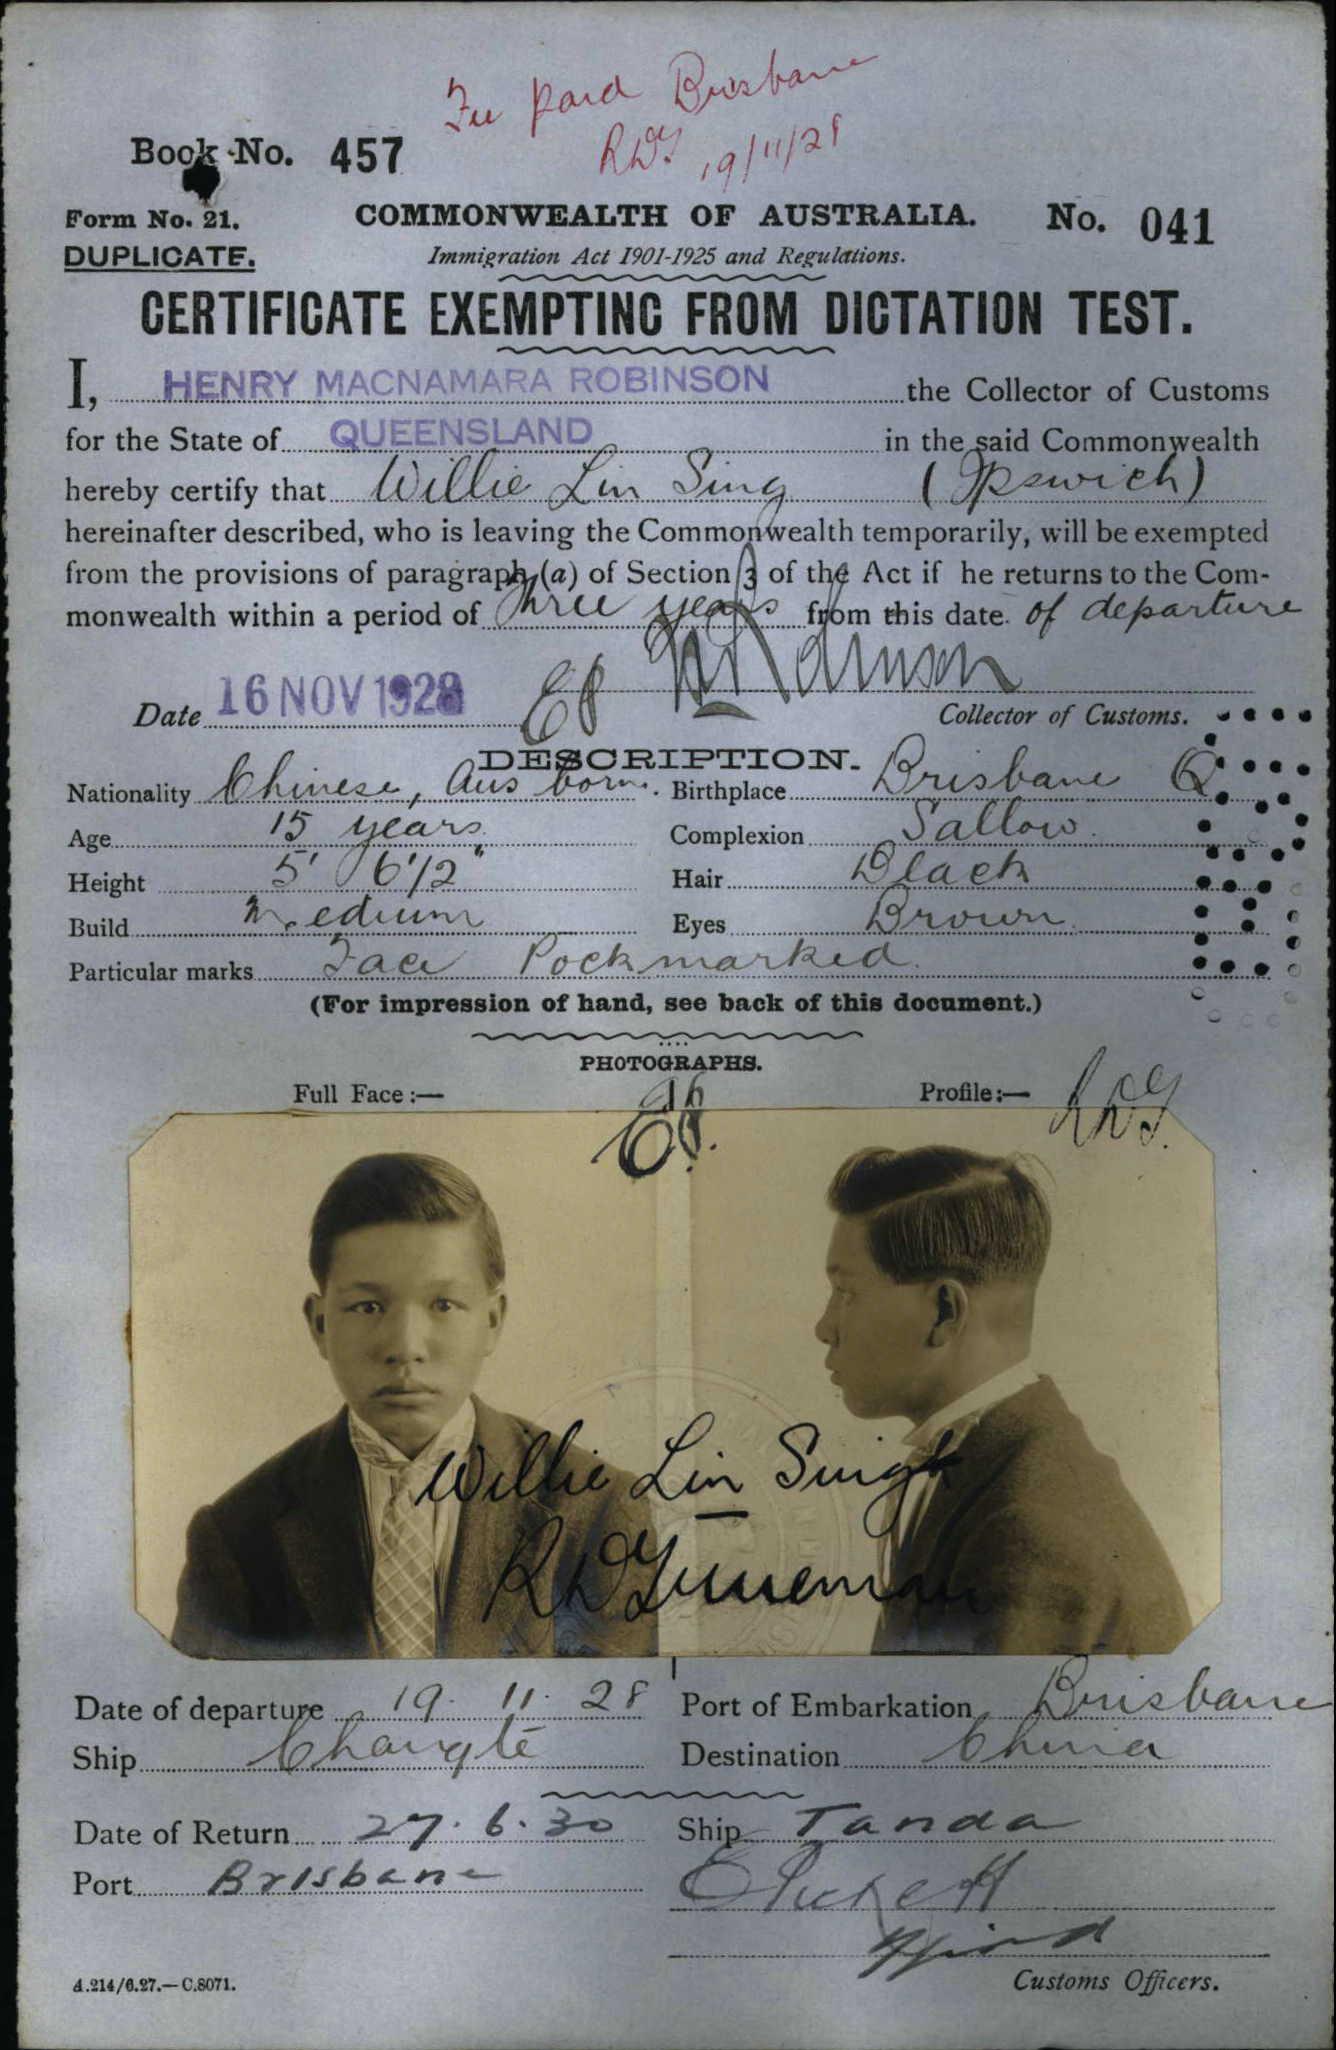 Fee paid Brisbane
RDG 19/11/28
Book No. 457
Form No. 21. COMMONWEALTH OF AUSTRALIA. No. 041
DUPLICATE. Immigration Act 1901-1925 and Regulations.
CERTIFICATE EXEMPTING FROM DICTATION TEST.
I, HENRY MACNAMARA ROBINSON the Collector of Customs
for the State of QUEENSLAND in the said Commonwealth
hereby certify that Willie Lin Sing (Ipswich)
hereinafter described, who is leaving the Commonwealth temporarily, will be exempted
from the provisions of paragraph (a) of Section 3 of the Act if he returns to the Com-
monwealth within a period of Three years from this date of departure
Date 16 NOV 1928
Collector of Customs.
DESCRIPTION.
Nationality Chinese, Aus born. Birthplace Brisbane Q
Age 15 years Complexion Sallow.
Height 5' 6 1/2" Hair Black
Build Medium Eyes Brown.
Particular marks Face Pockmarked.
(For impression of hand, see back of this document.)
PHOTOGRAPHS.
Full Face:— Profile:—
RDG.
Willie Lin Sing
Date of departure 19. 11. 28 Port of Embarkation Brisbane
Ship Changte Destination China
Date of Return 27. 6. 30 Ship Tanda
Port Brisbane
Customs Officers.
A.214/6.27.—C.8071.